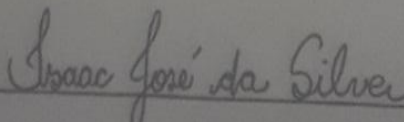 Isaac José da Silva